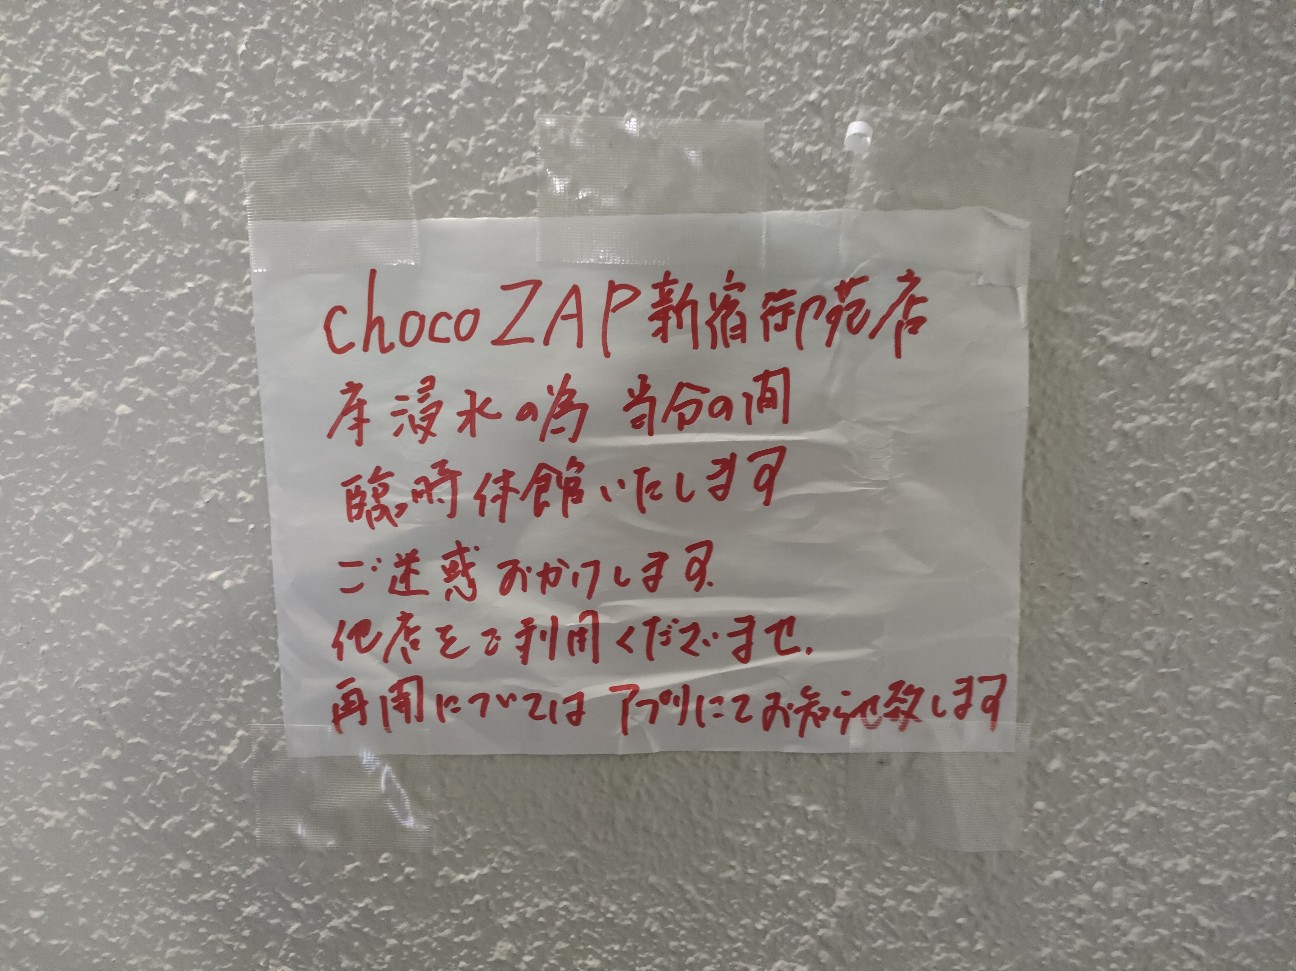 chocoZAP新宿御苑店
床浸水の為 当分の間
臨時休館いたします
ご迷惑おかけします.
他店をご利用くださいませ.
再開についてはアプリにてお知らせ致します